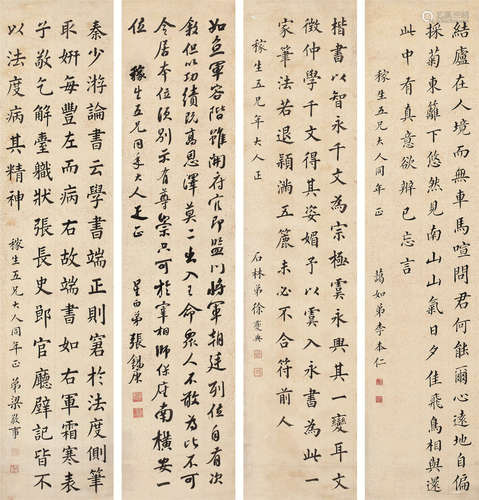 結廬在人境而無車馬喧問君何能爾心遠地自偏
採菊東籬下悠然見南山山氣日夕佳飛鳥相與還
此中有真意欲辨已忘言
稼生五兄大人同年正
藹如弟李本仁
楷書以智永千文為宗極虞永興其一變耳文
徵仲學千文得其姿媚予以虞入永書為此一
家筆法若退穎滿五簏未必不合符前人
稼生五兄年大人正
石林弟徐夔典
如魚軍容階雖開府官即監門將軍朝廷列位自有次
敘但以功績既高恩澤莫二出入王命眾人不敢為比不可
令居本位須別示有尊崇只可於宰相師保座南橫安一
位
稼生五兄同年大人是正
星白弟張錫庚
秦少游論書云學書端正則窘於法度側筆
取妍每豐左而病右故端書如右軍霜寒表
子敬乞解臺職狀張長史郎官廳壁記皆不
以法度病其精神
稼生五兄大人同年正
弟梁敬事